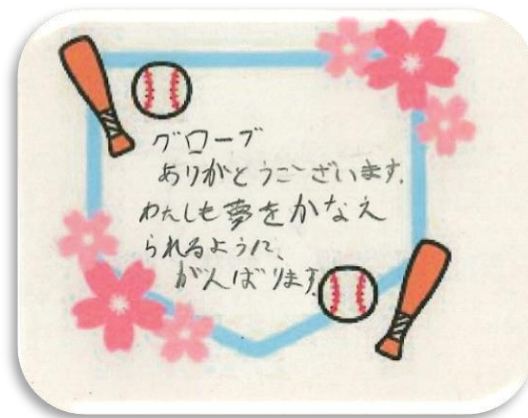 グローブ
ありがとうございます。
わたしも夢をかなえ
られるように、
がんばります。